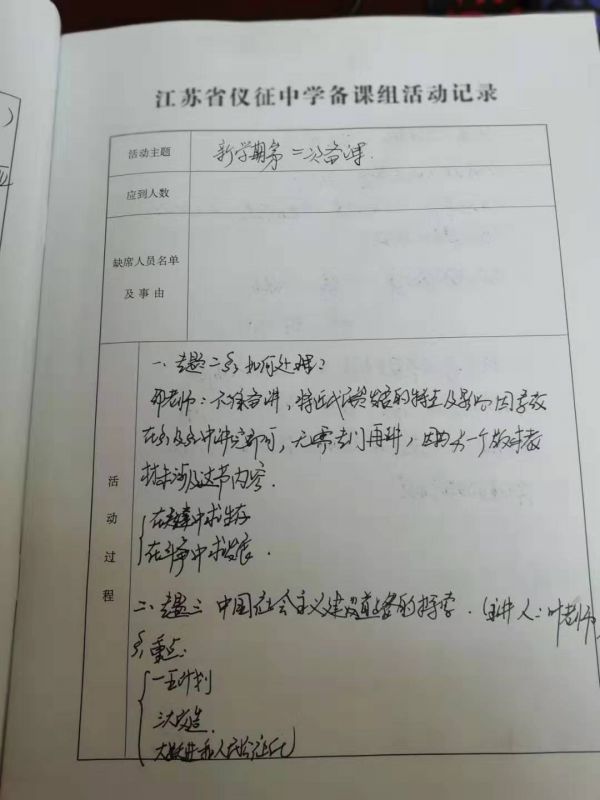 江苏省仪征中学备课组活动记录
活动主题
新学期第二次备课.
应到人数
缺席人员名单
及事由
活动过程
一、专题二§3如何处理?
老师:不准备讲,将近代民资发展的特点及影响因素放
在§1及§2中讲完即可,无需专门再讲,因为另一个版本教
材未涉及这节内容.
在夹缝中求生存
在斗争中求发展.
二、专题三 中国社会主义建设道路的探索.(主讲人:叶老师)
§1重点:
一五计划
三大改造
大跃进和人民公社化